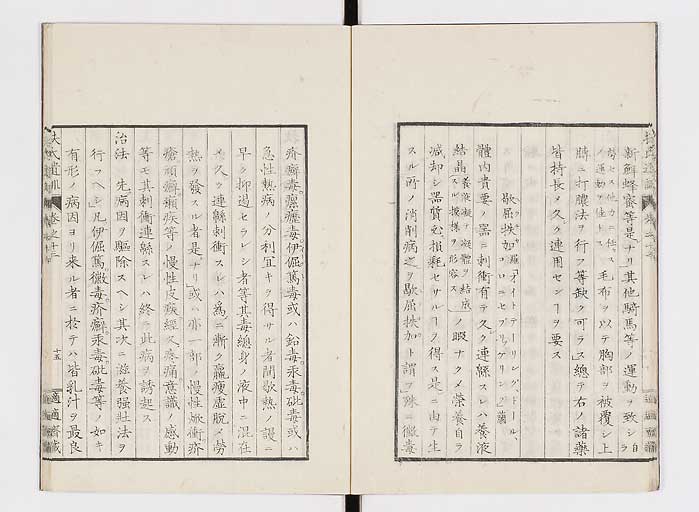 新鮮蜂蜜等是ナリ其他騎馬等ノ運動ヲ致シ自
毛布ヲ以テ胸部ヲ被覆シ上
膊ニ打膿法ヲ行フ等缺ク可ラス總テ右ノ諸藥
皆持長メ久ク連用センヿヲ要ス
歇屈挾加
體内貴要ノ器ニ刺衝有テ久ク連緜スレハ養液
結晶
ノ暇ナクメ榮養自ラ
減却シ器質
損耗セサルヿヲ得ス是ニ由テ生
スル所ノ消削病之ヲ歇屈挾加ト謂フ殊ニ黴毒
疥癬毒
伊倔篤毒或ハ鉛毒汞毒砒毒或ハ
急性熱病ノ分利宜キヲ得サル者間歇熱ノ謾ニ
早ク抑遏セラレシ者等其毒總身ノ液中ニ混在
メ久ク連緜刺衝スレハ爲ニ漸ク羸瘦虚脱メ勞
熱ヲ發スル者是ナリ或ハ亦一部ノ慢性焮衝疥
瘡頑癬癩疾等ノ慢性皮痰經久疼痛意識ノ感動
等モ其刺衝連緜スレハ終ニ此病ヲ誘起ス
治法 先病因ヲ驅除スヘシ其次ニ滋養强壯法ヲ
行フヘシ凡伊倔篤黴毒疥癬汞毒砒毒等ノ如キ
有形ノ病因ヨリ來ル者ニ於テハ皆乳汁ヲ最良
扶氏遺訓 卷之十二
十五
適適齋藏